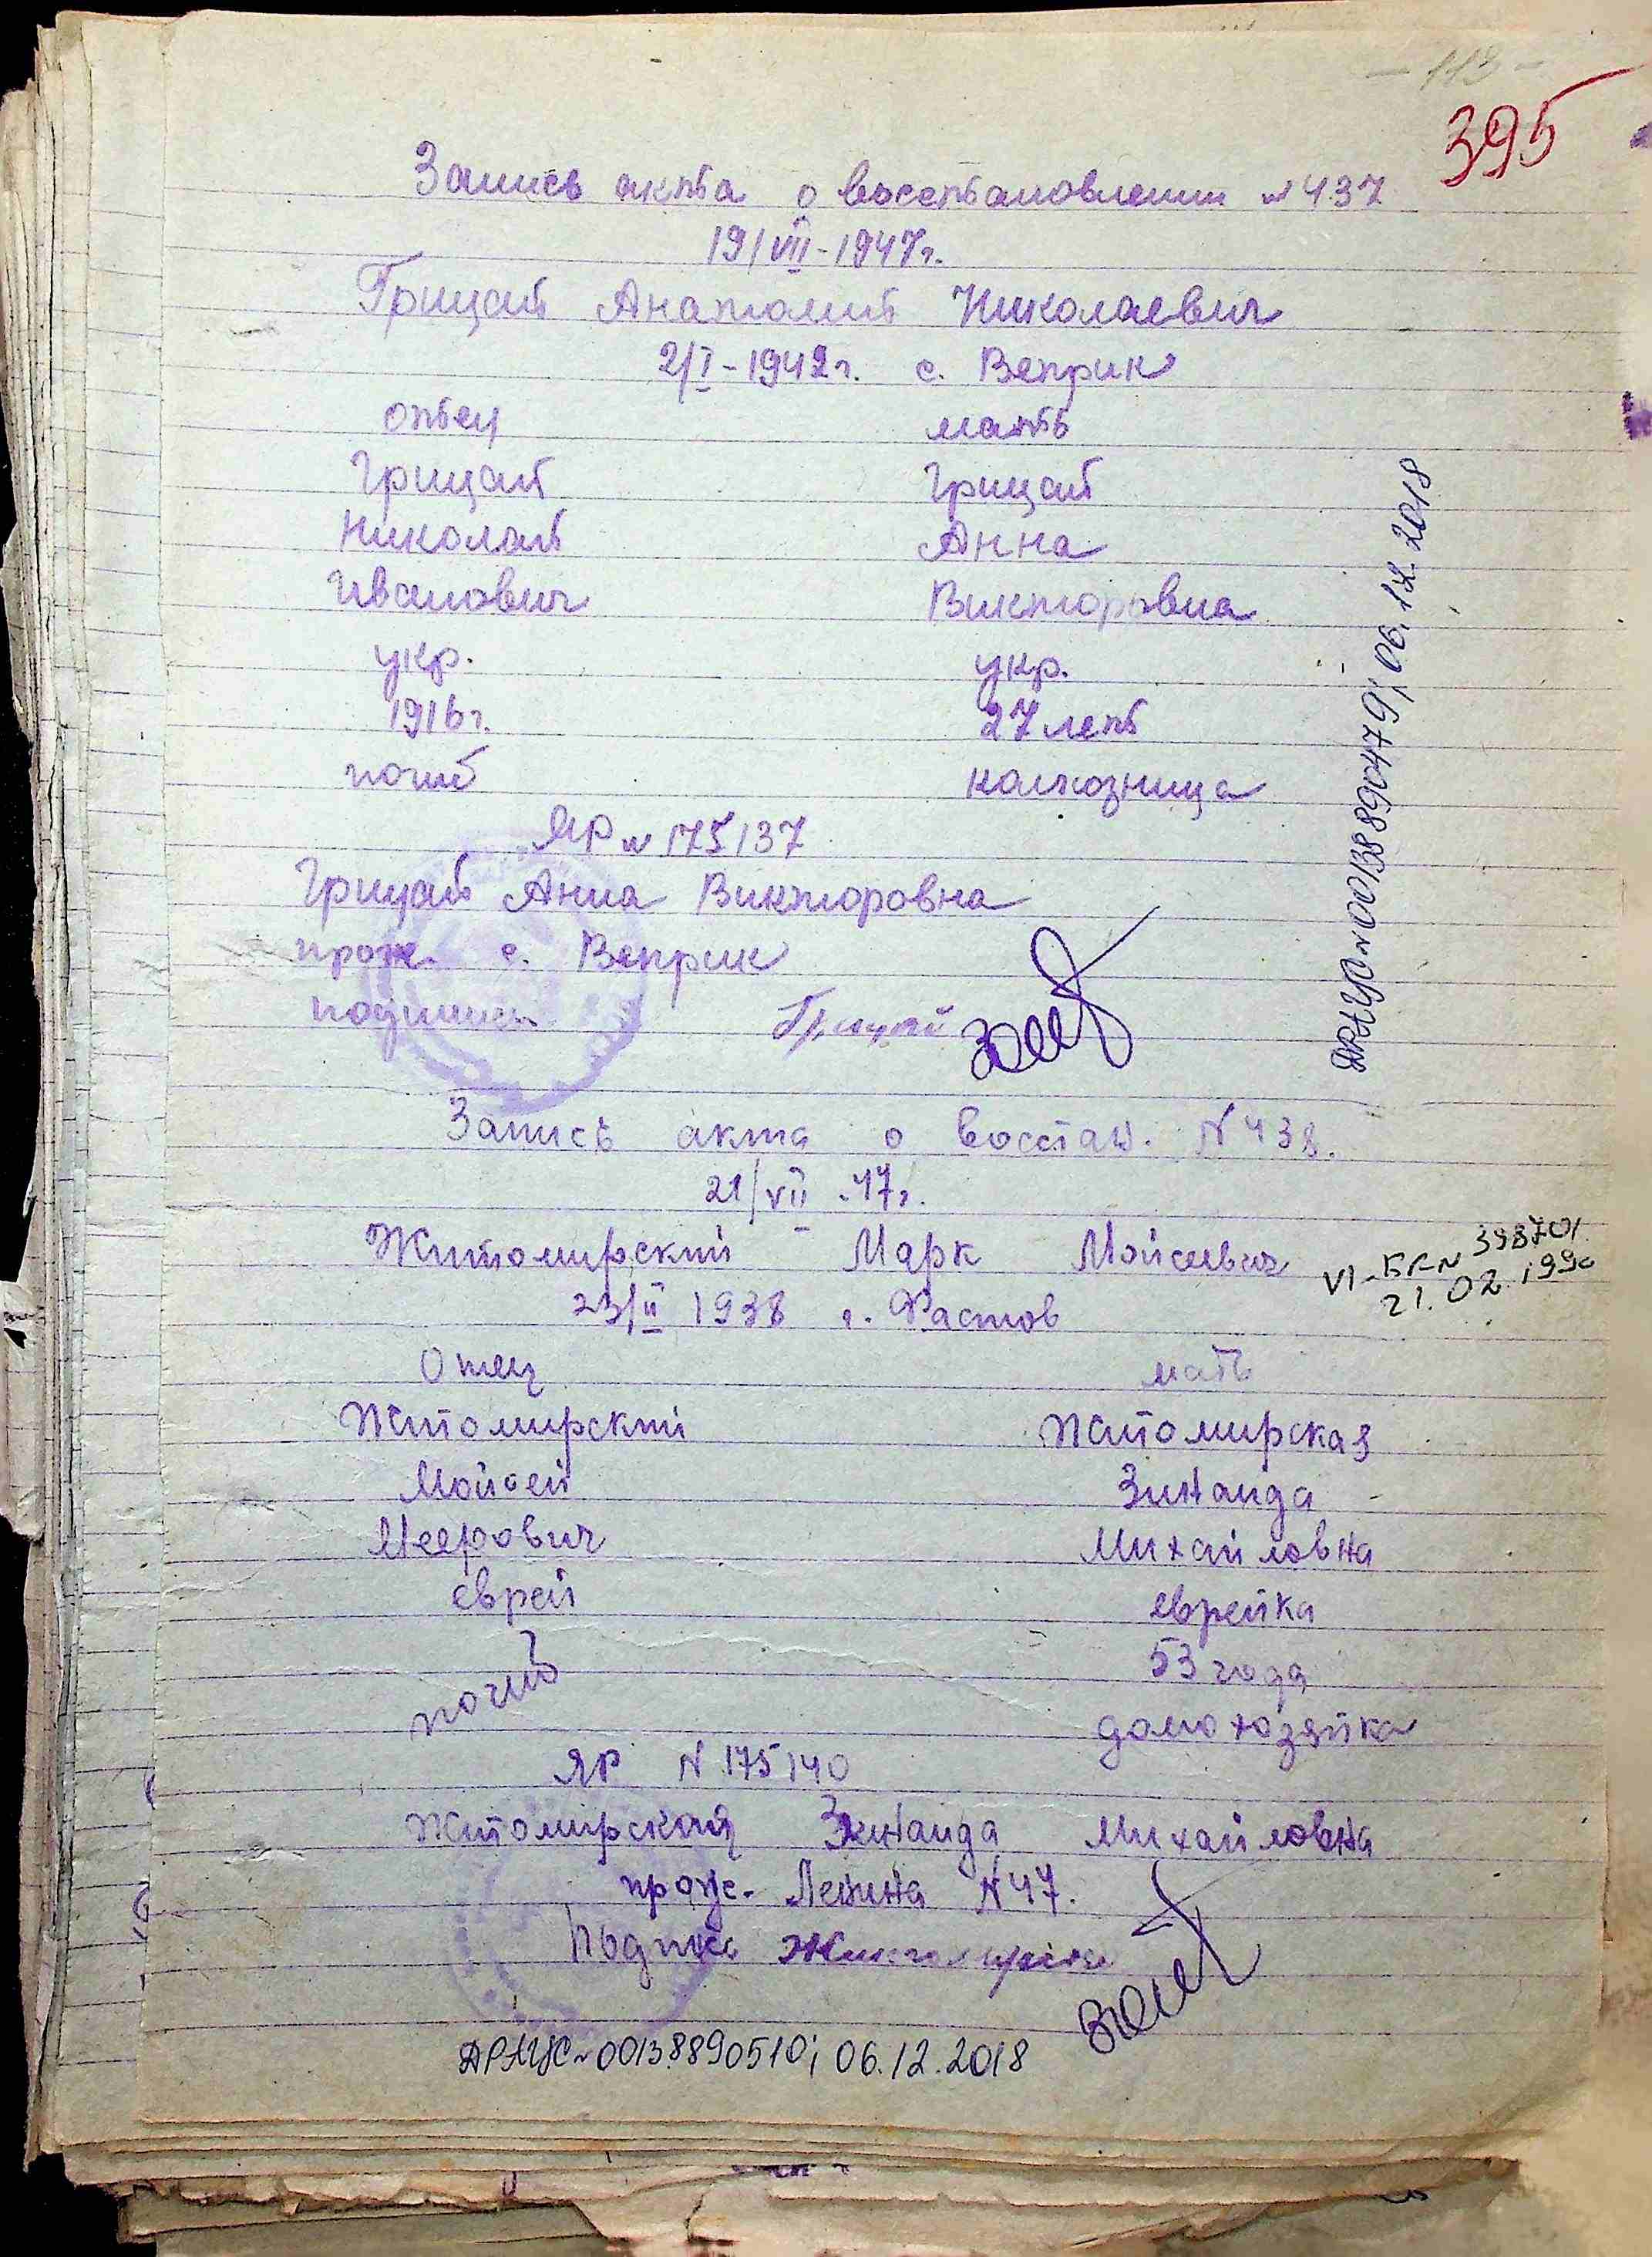 - 113 -
395
Запись акта о восстановлении № 437
19/VII-1947г.
Грицай Анатолий Николаевич
2/I-1942г. с. Веприк
отец мать
Грицай Грицай
Николай Анна
Иванович Викторовна
укр. укр.
1916г. 27 лет
погиб колхозница
ЯР № 175137
Грицай Анна Викторовна
прож. с. Веприк
подпись Грицай
ДРАЦС № 00138890479; 06.12.2018
Запись акта о восстан. № 438.
21/VII.47г.
Житомирский Марк Мойсеевич
VI-БК № 398701
21.02.1990
23/II 1938 г. Фастов
Отец мать
Житомирский Житомирская
Мойсей Зинаида
Меерович Михайловна
еврей еврейка
53 года
погиб
домохозяйка
ЯР № 175140
Житомирская Зинаида Михайловна
прож. Ленина № 47.
Подпись
ДРАЦС № 00138890510; 06.12.2018